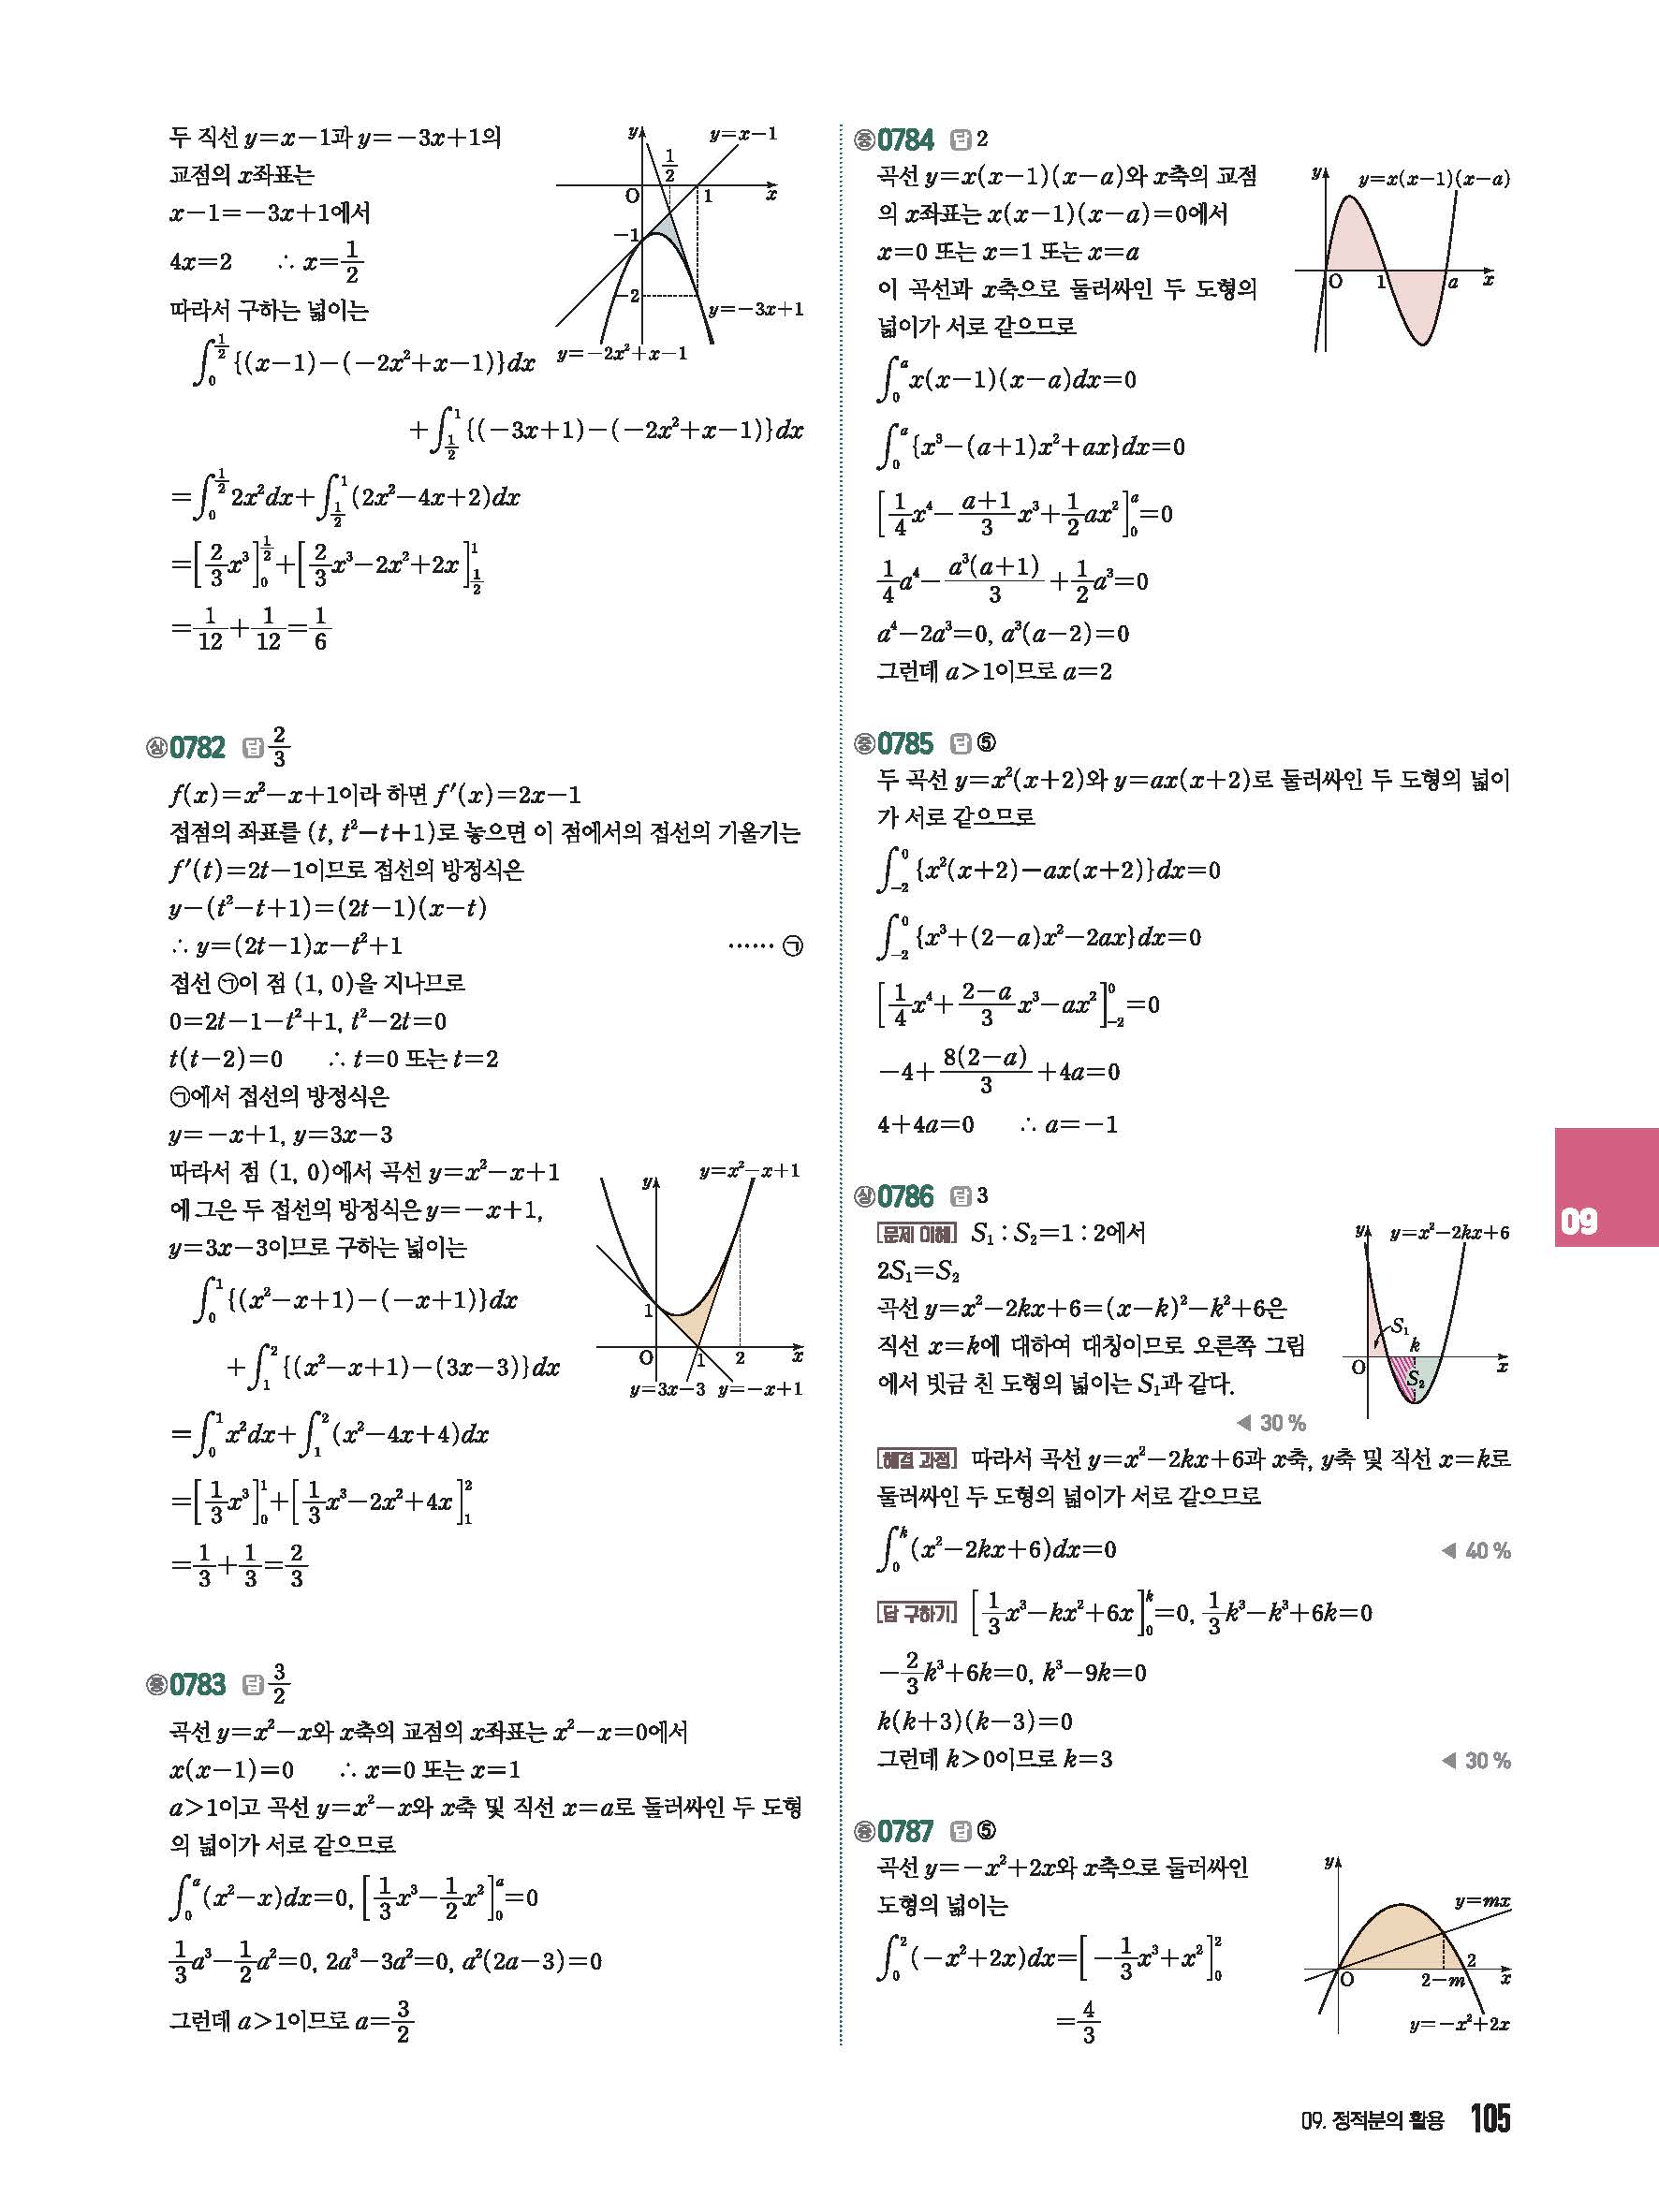 두 직선 y=x-1과 y=-3x+1의
교점의 x좌표는
x-1=-3x+1에서
4x=2 ∴ x=1/2
따라서 구하는 넓이는
∫_0^{1/2} {(x-1)-(-2x²+x-1)}dx
+∫_{1/2}^1 {(-3x+1)-(-2x²+x-1)}dx
=∫_0^{1/2} 2x²dx+∫_{1/2}^1 (2x²-4x+2)dx
=[2/3 x³]_0^{1/2}+[2/3 x³-2x²+2x]_{1/2}^1
=1/12+1/12=1/6
y
y=x-1
1/2
O
1
x
-1
-2
y=-3x+1
y=-2x²+x-1
상 0782 답 2/3
f(x)=x²-x+1이라 하면 f'(x)=2x-1
접점의 좌표를 (t, t²-t+1)로 놓으면 이 점에서의 접선의 기울기는
f'(t)=2t-1이므로 접선의 방정식은
y-(t²-t+1)=(2t-1)(x-t)
∴ y=(2t-1)x-t²+1 …… ㉠
접선 ㉠이 점 (1, 0)을 지나므로
0=2t-1-t²+1, t²-2t=0
t(t-2)=0 ∴ t=0 또는 t=2
㉠에서 접선의 방정식은
y=-x+1, y=3x-3
따라서 점 (1, 0)에서 곡선 y=x²-x+1
에 그은 두 접선의 방정식은 y=-x+1,
y=3x-3이므로 구하는 넓이는
∫_0^1 {(x²-x+1)-(-x+1)}dx
+∫_1^2 {(x²-x+1)-(3x-3)}dx
=∫_0^1 x²dx+∫_1^2 (x²-4x+4)dx
=[1/3 x³]_0^1+[1/3 x³-2x²+4x]_1^2
=1/3+1/3=2/3
y
y=x²-x+1
1
O
1
2
x
y=3x-3
y=-x+1
중 0783 답 3/2
곡선 y=x²-x와 x축의 교점의 x좌표는 x²-x=0에서
x(x-1)=0 ∴ x=0 또는 x=1
a>1이고 곡선 y=x²-x와 x축 및 직선 x=a로 둘러싸인 두 도형
의 넓이가 서로 같으므로
∫_0^a (x²-x)dx=0, [1/3 x³-1/2 x²]_0^a=0
1/3 a³-1/2 a²=0, 2a³-3a²=0, a²(2a-3)=0
그런데 a>1이므로 a=3/2
중 0784 답 2
곡선 y=x(x-1)(x-a)와 x축의 교점
의 x좌표는 x(x-1)(x-a)=0에서
x=0 또는 x=1 또는 x=a
이 곡선과 x축으로 둘러싸인 두 도형의
넓이가 서로 같으므로
∫_0^a x(x-1)(x-a)dx=0
∫_0^a {x³-(a+1)x²+ax}dx=0
[1/4 x⁴-(a+1)/3 x³+1/2 ax²]_0^a=0
1/4 a⁴-a³(a+1)/3+1/2 a³=0
a⁴-2a³=0, a³(a-2)=0
그런데 a>1이므로 a=2
y
y=x(x-1)(x-a)
O
1
a
x
중 0785 답 ⑤
두 곡선 y=x²(x+2)와 y=ax(x+2)로 둘러싸인 두 도형의 넓이
가 서로 같으므로
∫_{-2}^0 {x²(x+2)-ax(x+2)}dx=0
∫_{-2}^0 {x³+(2-a)x²-2ax}dx=0
[1/4 x⁴+(2-a)/3 x³-ax²]_{-2}^0=0
-4+8(2-a)/3+4a=0
4+4a=0 ∴ a=-1
상 0786 답 3
문제 이해 S₁ : S₂=1 : 2에서
2S₁=S₂
곡선 y=x²-2kx+6=(x-k)²-k²+6은
직선 x=k에 대하여 대칭이므로 오른쪽 그림
에서 빗금 친 도형의 넓이는 S₁과 같다.
◀ 30 %
y
y=x²-2kx+6
S₁
k
O
x
S₂
해결 과정 따라서 곡선 y=x²-2kx+6과 x축, y축 및 직선 x=k로
둘러싸인 두 도형의 넓이가 서로 같으므로
∫_0^k (x²-2kx+6)dx=0 ◀ 40 %
답 구하기 [1/3 x³-kx²+6x]_0^k=0, 1/3 k³-k³+6k=0
-2/3 k³+6k=0, k³-9k=0
k(k+3)(k-3)=0
그런데 k>0이므로 k=3 ◀ 30 %
중 0787 답 ⑤
곡선 y=-x²+2x와 x축으로 둘러싸인
도형의 넓이는
∫_0^2 (-x²+2x)dx=[-1/3 x³+x²]_0^2
=4/3
y
y=mx
2
O
2-m
x
y=-x²+2x
09
09. 정적분의 활용 105